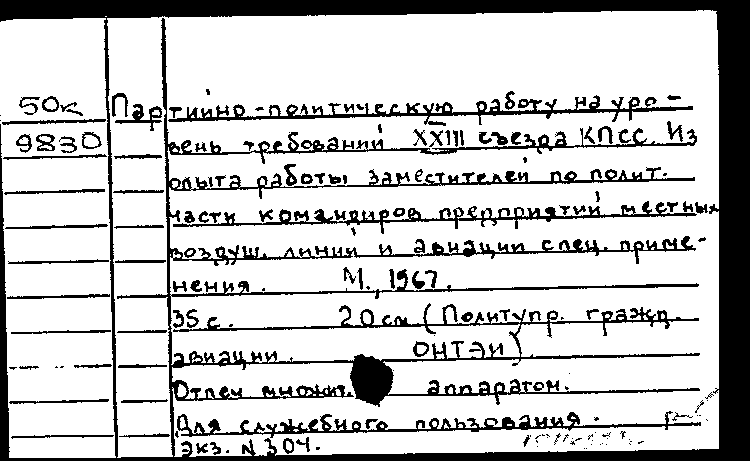 50к Партийно-политическую работу на уро-
9830 вень требований XXIII съезда КПСС. Из
опыта работы заместителей по полит.
части командиров предприятий местных
воздуш. линий и авиации спец. приме-
нения. М., 1967.
35 с. 20 см (Политупр. гражд.
авиации. ОНТЭИ)
Отпеч множит. аппаратом.
Для служебного пользования.
Экз. N 304.